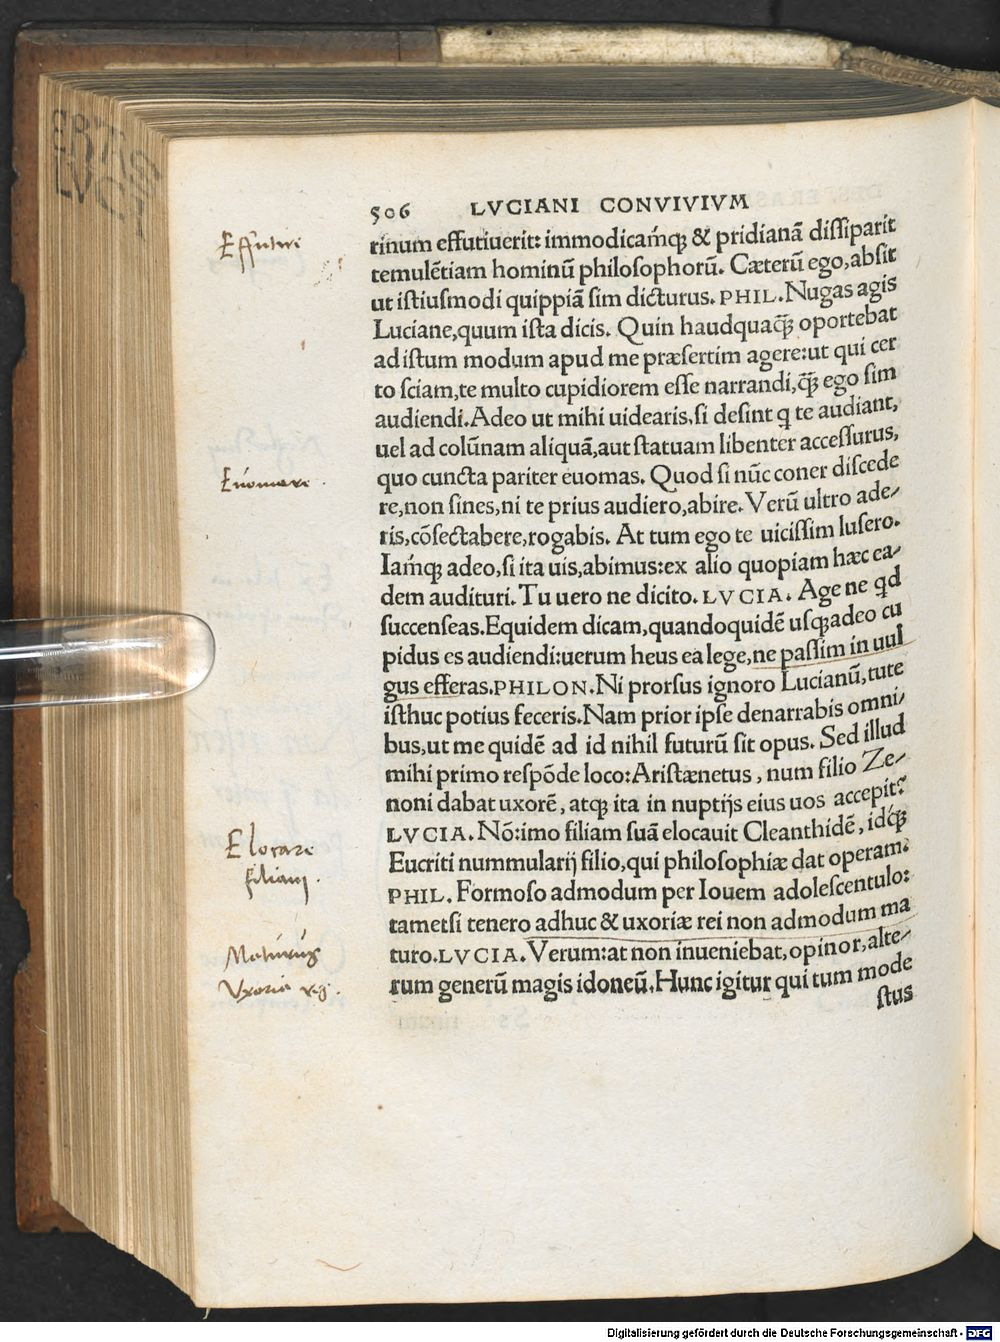 506 LVCIANI CONVIVIVM
rinum effutiuerit: immodicamq́; & pridianā dissiparit
temulētiam hominū philosophorū. Cæterū ego, absit
ut istiusmodi quippiā sim dicturus. PHIL. Nugas agis
Luciane, quum ista dicis. Quin haudquaq̃; oportebat
ad istum modum apud me præsertim agere: ut qui cer
to sciam, te multo cupidiorem esse narrandi, q̃; ego sim
audiendi. Adeo ut mihi uidearis, si desint q te audiant,
uel ad colūnam aliquā, aut statuam libenter accessurus,
quo cuncta pariter euomas. Quod si nūc coner discede
re, non sines, ni te prius audiero, abire. Verū ultro ade-
ris, cōsectabere, rogabis. At tum ego te uicissim lusero.
Iamq́; adeo, si ita uis, abimus: ex alio quopiam hæc ea-
dem audituri. Tu uero ne dicito. LVCIA. Age ne qd
succenseas. Equidem dicam, quandoquidē usq; adeo cu
pidus es audiendi: uerum heus ea lege, ne passim in uul
gus efferas. PHILON. Ni prorsus ignoro Lucianū, tute
isthuc potius feceris. Nam prior ipse denarrabis omni-
bus, ut me quidē ad id nihil futurū sit opus. Sed illud
mihi primo respōde loco: Aristænetus, num filio Ze-
noni dabat uxorē, atq; ita in nuptijs eius uos accepit?
LVCIA. Nō: imo filiam suā elocauit Cleanthidē, idq́;
Eucriti nummularij filio, qui philosophiæ dat operam.
PHIL. Formoso admodum per Iouem adolescentulo:
tametsi tenero adhuc & uxoriæ rei non admodum ma
turo. LVCIA. Verum: at non inueniebat, opinor, alte-
rum generū magis idoneū. Hunc igitur qui tum mode
stus
Effutire
Euomere.
Elocare
filiam.
Maturus
Vxoriæ
ERAS
LVCI
Digitalisierung gefördert durch die Deutsche Forschungsgemeinschaft - DFG